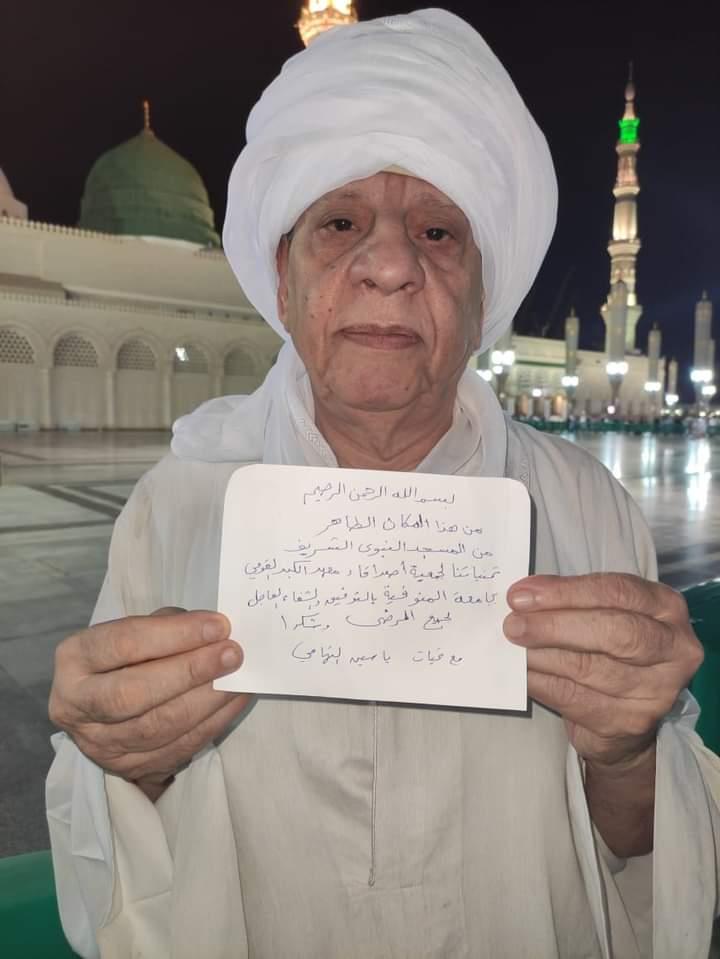 بسم الله الرحمن الرحيم
من هذا المكان الطاهر
من المسجد النبوى الشريف
تمنياتنا لجمعية أصدقاء معهد الكبد القومي
بجامعة المنوفية بالتوفيق والشفاء العاجل
لجميع المرضى وشكرا
مع تحيات ياسين التهامي